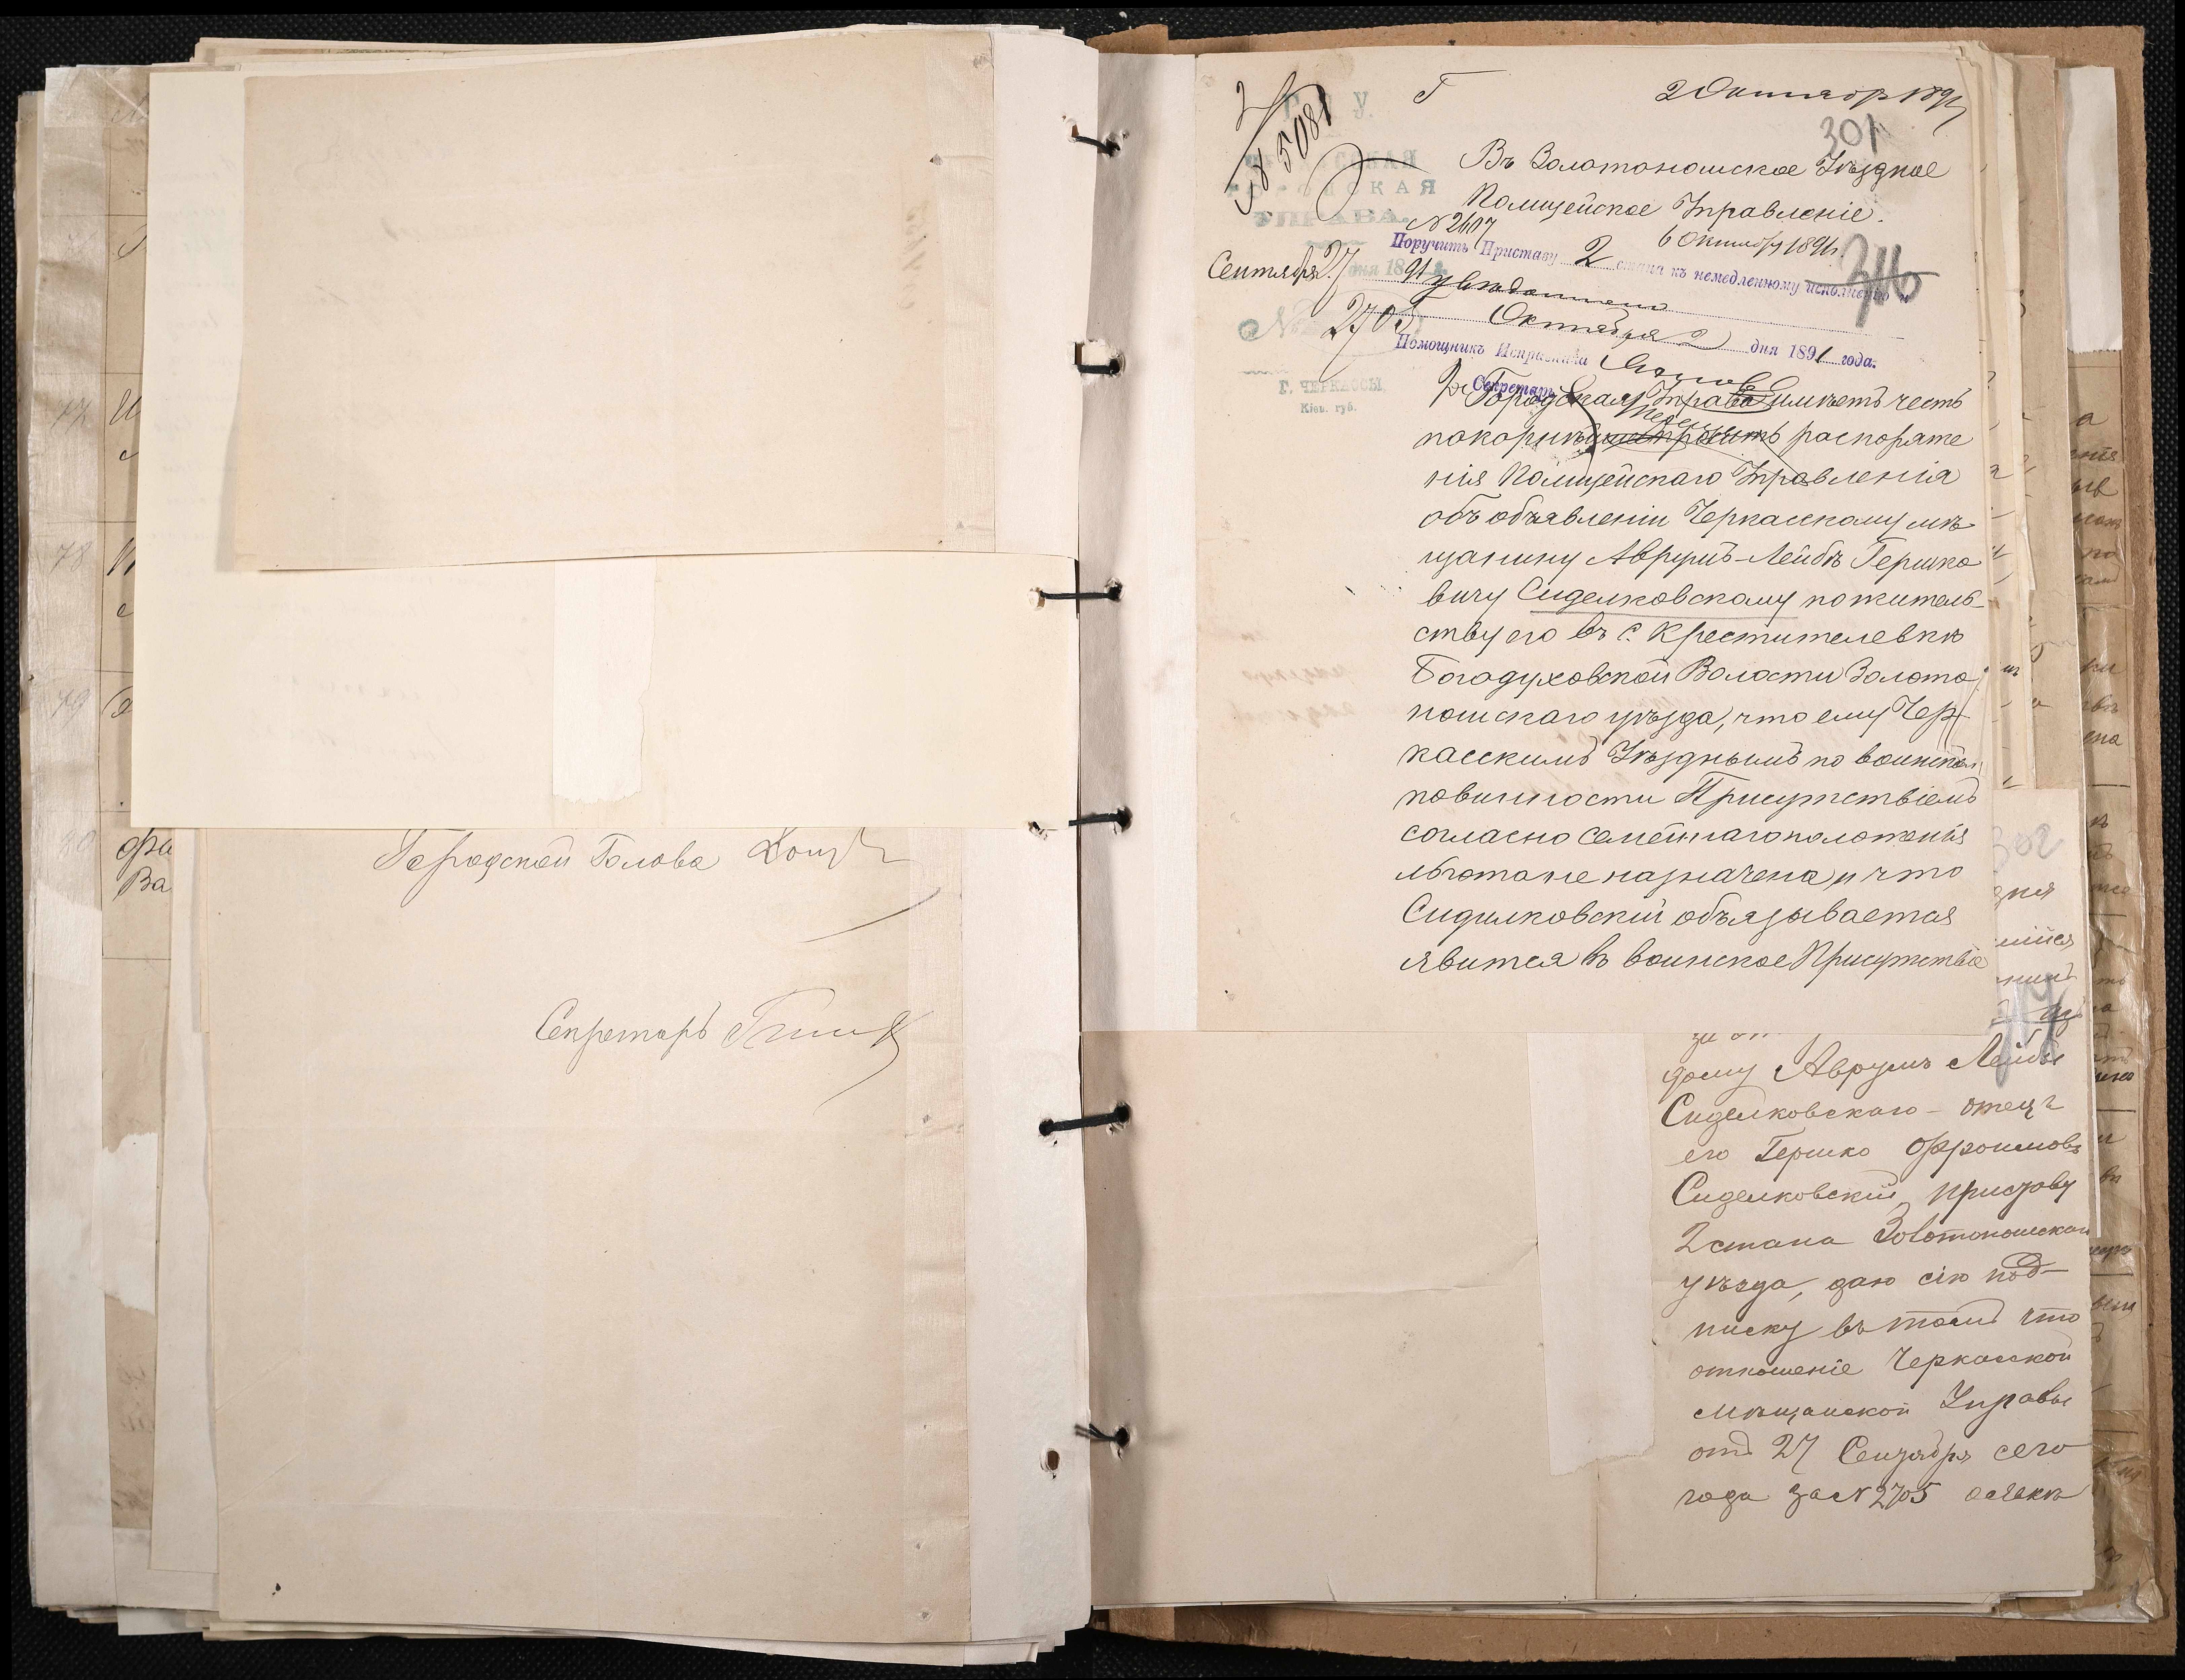 77
78
79
80
фи
Ва
Городской Голова
Секретарь
2 Октября 1891
301
№ 5081
Г
Въ Золотоношское Уѣздное
Полицейское Управленіе.
УПРАВА.
№ 2607
6 Октября 1891 г.
Поручить Приставу 2 стана къ немедленному исполненію и
316
Сентября 27 дня 1891 г.
увѣдомленію
№ 2705
Октября 2 дня 1891 года.
Помощникъ Исправника
Г. ЧЕРКАССЫ
Кіев. губ.
Секретарь
Городская Управа имѣетъ честь
покорнѣйше просить распоряже
нія Полицейскаго Управленія
объ объявленіи Черкасскому мѣ
щанину Аврумъ-Лейбѣ Гершко
вичу Сиделковскому по житель-
ству его въ с. Крестителевкѣ
Богодуховской Волости Золото
ношскаго уѣзда, что ему Чер
касскимъ Уѣзднымъ по воинской
повинности Присутствіемъ
согласно семейнаго положенія
льгота не назначена и что
Сидилковскій объязывается
явится въ воинское Присутствіе
302
дому Аврумъ Лейбы
Сиделковскаго - отецъ
его Гершко Офроимовъ
Сиделковскій, приставу
2 стана Золотоношскаго
уѣзда, даю сію под-
писку въ томъ что
отношеніе Черкасской
Мѣщанской Управы
отъ 27 Сентября сего
года за № 2705 о явкѣ